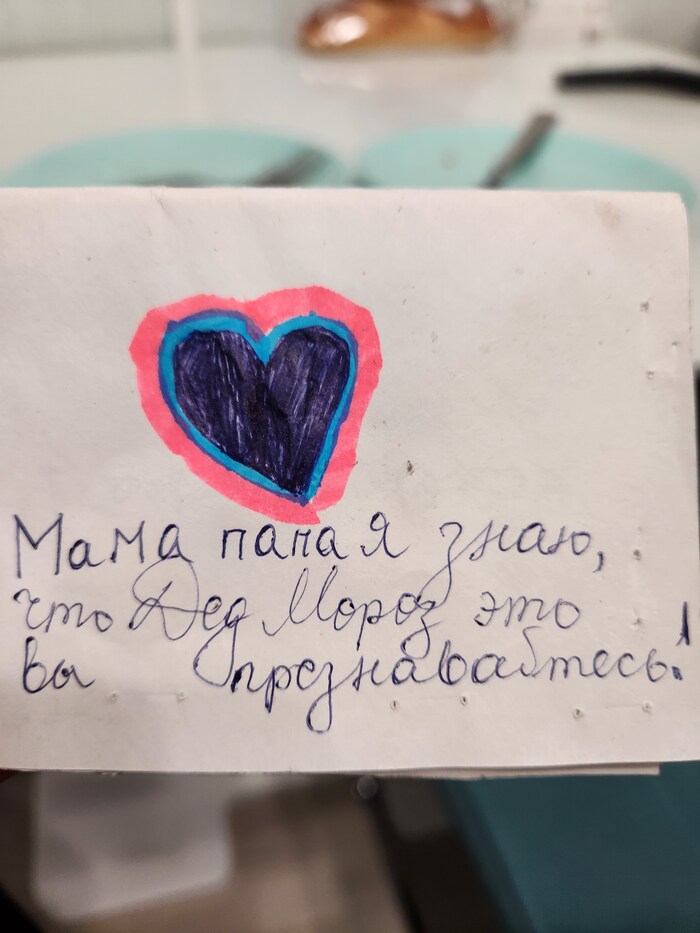 Мама папа я знаю,
что Дед Мороз это
вы презнавайтесь!